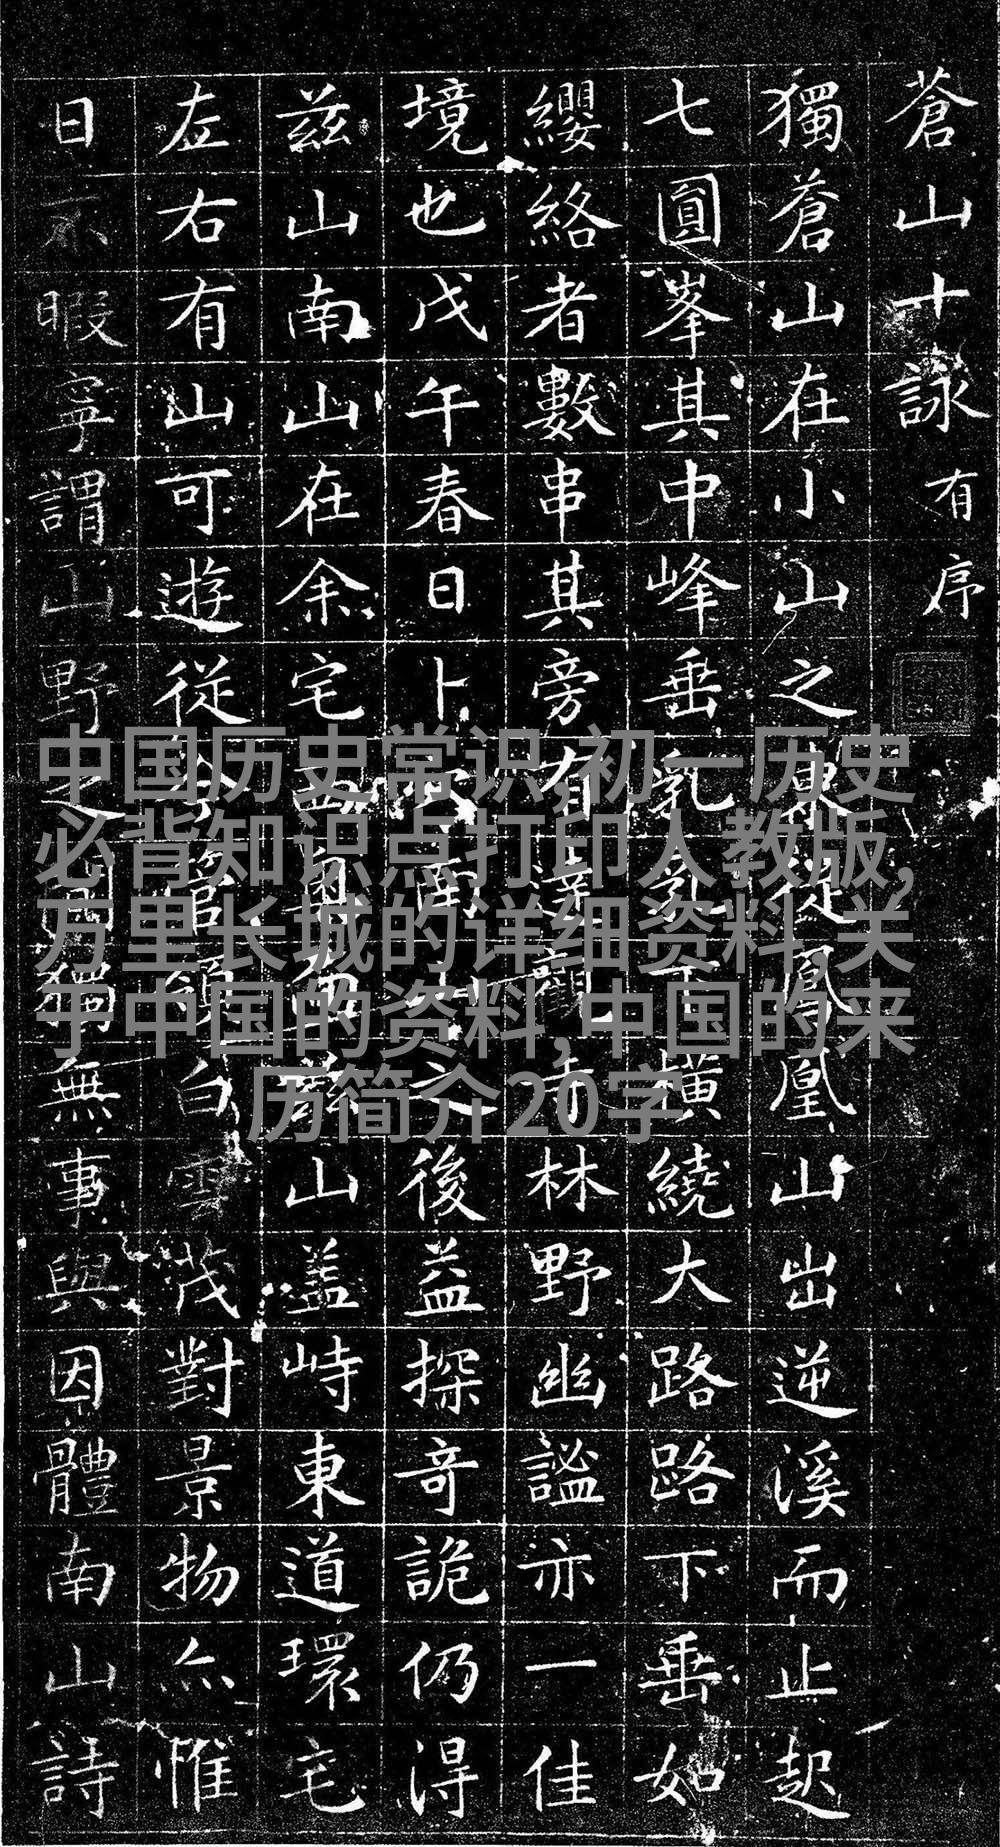 蒼山十詠 有序
獨蒼山在小山之東從鳳凰山出逆溪而止起
七圓峯其中峰垂乳乳下橫繞大路路下垂如
纓絡者數串其旁有達觀寺林野幽謐亦一佳
境也戊午春日卜南山之後益探奇詭仍得
茲山南山在余宅山盖峙東道環宅
左右有山可遊從今管領白雲茂對景物亦惟
日不暇寧謂山野之間猶無事與因體南山詩
中国历史常识,初一历史
必背知识点打印人教版,
万里长城的详细资料,关
于中国的资料,中国的来
历简介20字